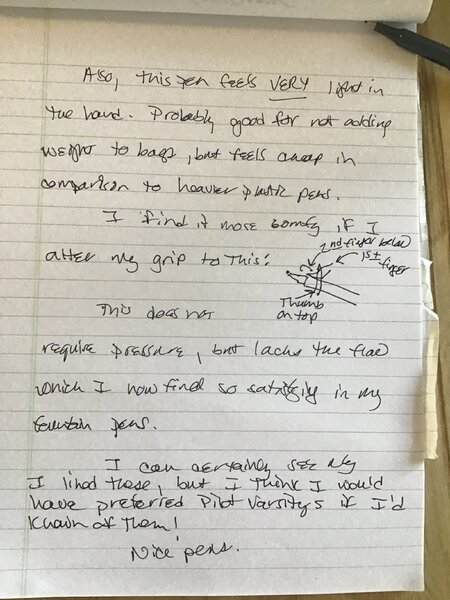 Also, this pen feels VERY light in
the hand. Probably good for not adding
weight to bags, but feels cheap in
comparison to heavier plastic pens.
I find it more comfy if I
alter my grip to this:
2nd finger below
1st finger
Thumb
on top
This does not
require pressure, but lacks the
which I now find so satisfying in my
fountain pens.
I can certainly see why
I liked these, but I think I would
have preferred Pilot Varsitys if I'd
known of them!
Nice pens.